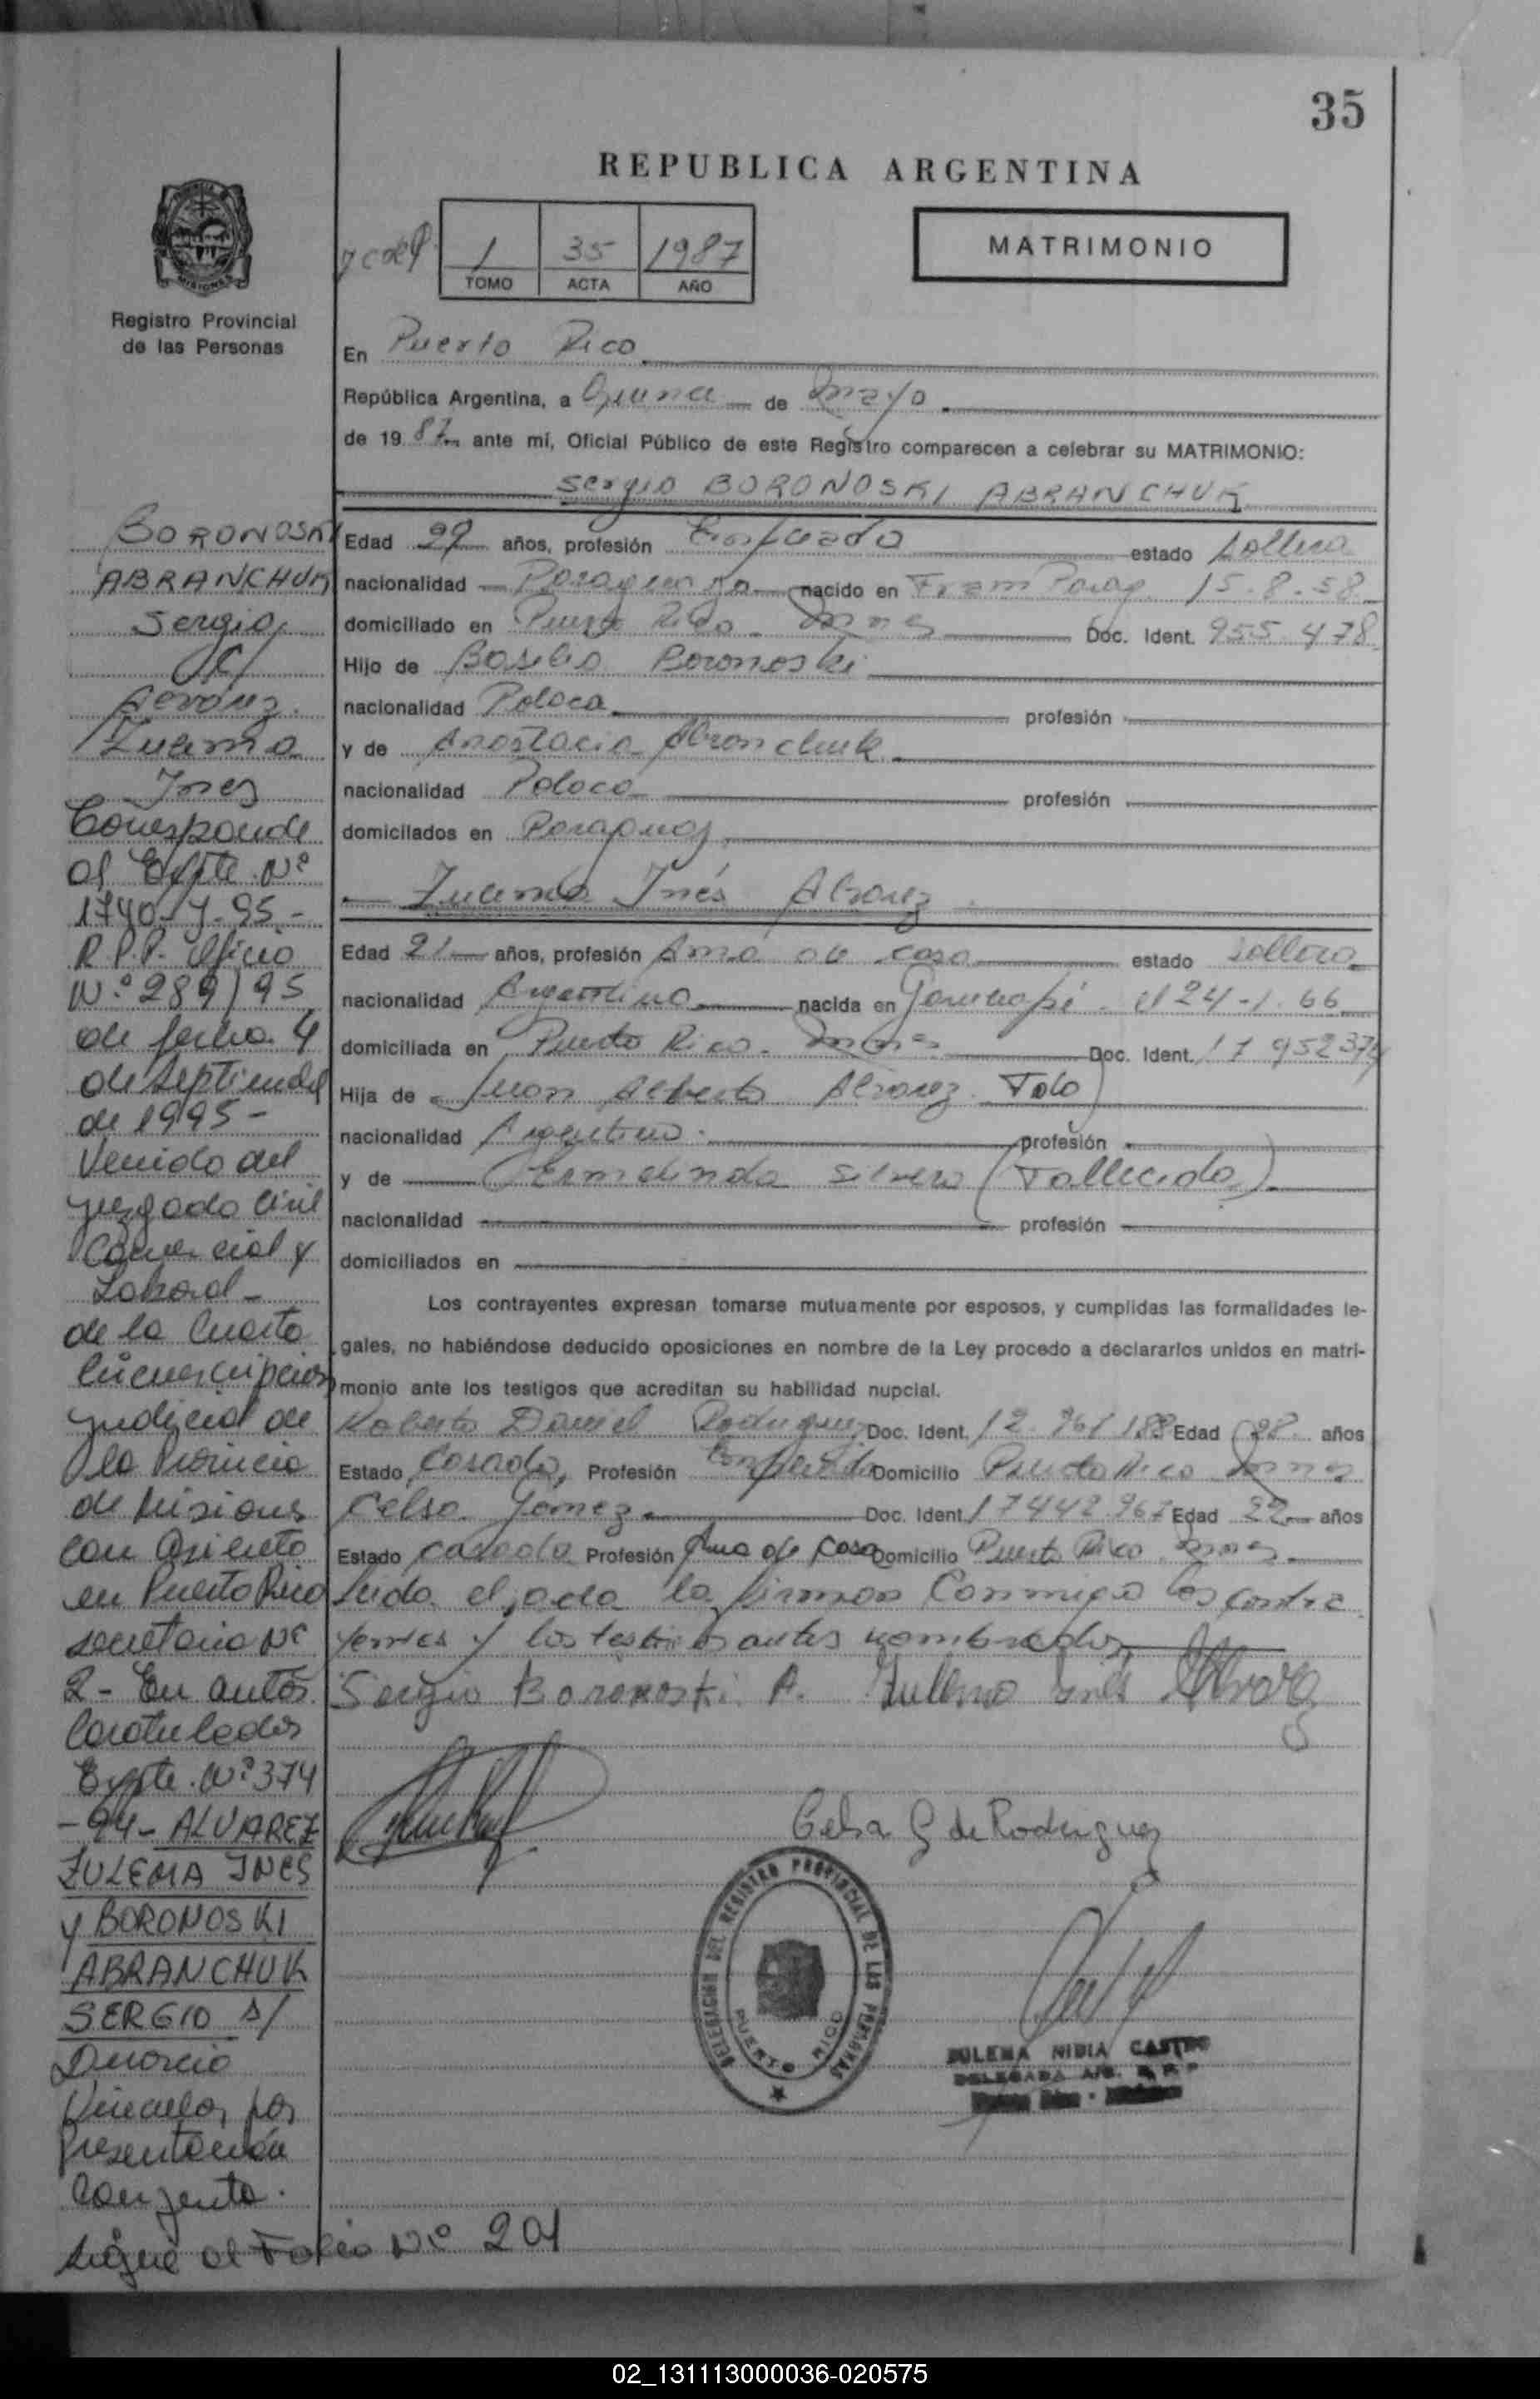 35
REPUBLICA ARGENTINA
1 35 1987
TOMO ACTA AÑO
MATRIMONIO
Registro Provincial
de las Personas
En Puerto Rico
República Argentina, a de mayo
de 19 87 ante mí, Oficial Público de este Registro comparecen a celebrar su MATRIMONIO:
Sergio BORONOSKI ABRANCHUK
Edad años, profesión Empleado estado Soltero
nacionalidad Paraguaya nacido en Fram Parag. 15.8.58
domiciliado en Puerto Rico Mnes Doc. Ident. 955 478
Hijo de Basilio Boronoski
nacionalidad Polaca profesión
y de Anastacia Abranchuk
nacionalidad Polaca profesión
domicilados en Paraguay
Zulema Inés Alvarez
Edad 21 años, profesión Ama de casa estado Soltera
nacionalidad Argentina nacida en Garuhapé el 24-1.66
domiciliada en Puerto Rico. Mnes Doc. Ident. 17 952374
Hija de Juan Alberto Alvarez
nacionalidad Argentino. profesión
y de Ermelinda Silvero (Fallecida)
nacionalidad profesión
domiciliados en
Los contrayentes expresan tomarse mutuamente por esposos, y cumplidas las formalidades le-
gales, no habiéndose deducido oposiciones en nombre de la Ley procedo a declararlos unidos en matri-
monio ante los testigos que acreditan su habilidad nupcial.
Roberto Daniel Rodriguez Doc. Ident. 12.761 188 Edad 28 años
Estado Casado, Profesión Empleado Domicilio Puerto Rico Mnes
Celsa Gomez Doc. Ident. 17442 967 Edad 22 años
Estado casada Profesión Ama de casa Domicilio Puerto Rico Mnes
Leida el acta la firman conmigo los contra
yentes y los testigos antes nombrados
Sergio Boronoski A. Zulema Inés Alvarez
Celsa G de Rodriguez
DELEGACION DEL REGISTRO PROVINCIAL DE LAS PERSONAS
PUERTO RICO
ZULEMA NIDIA CASTRO
DELEGADA
BORONOSKI
ABRANCHUK
Sergio,
c/
Alvarez
Zulema
Ines
Corresponde
al Expte. Nº
1740-J-95-
R.P.P. Oficio
Nº 289/95
de fecha 4
de septiembre
de 1995-
Venido del
juzgado Civil
Comercial y
Laboral-
de la Cuarta
Circunscripcion
judicial de
la Provincia
de Misiones
con asiento
en Puerto Rico
secretaria Nº
2- En autos
Caratulados
Expte. Nº 374
-94- ALVAREZ
ZULEMA INES
y BORONOSKI
ABRANCHUK
SERGIO S/
Divorcio
Vincular por
Presentación
Conjunta.
Sigue al Folio Nº 201
02_131113000036-020575